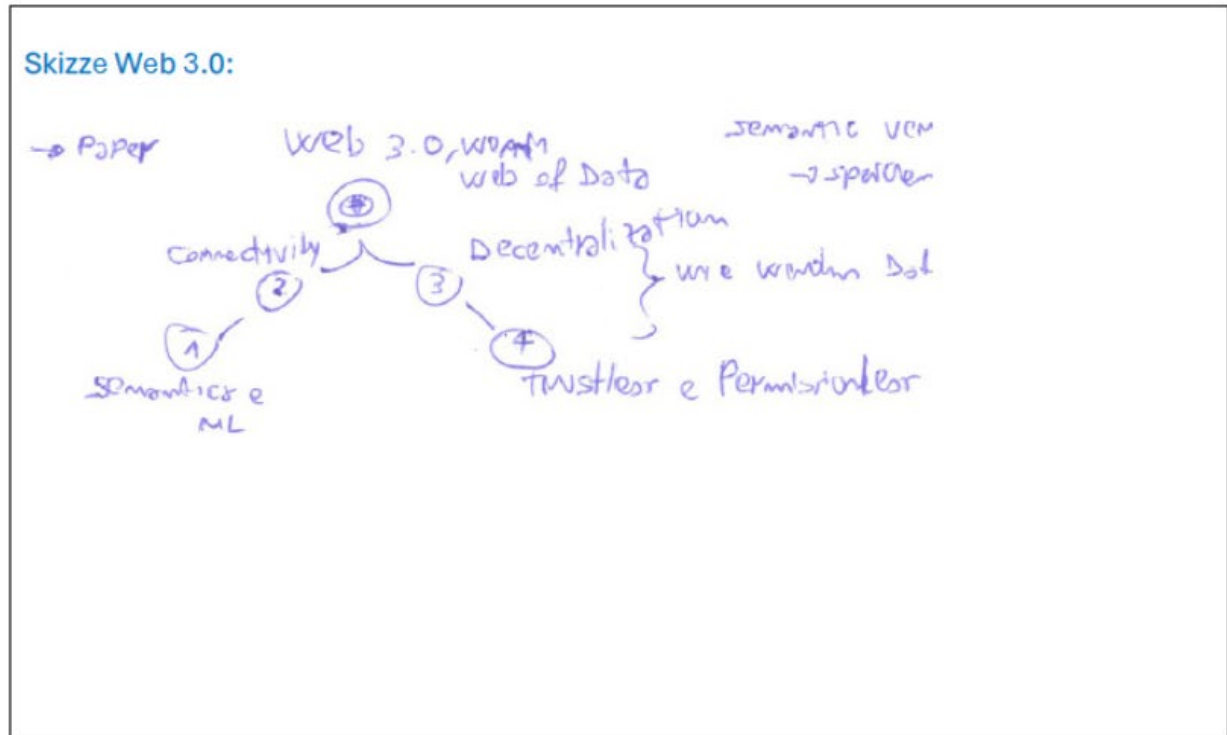 Skizze Web 3.0:
→ Paper
Web 3.0,
Web of Data
Semantic
Connectivity
Decentralization
2
3
wie werden Dat
1
4
Semantics e
ML
Trustless e Permissionless